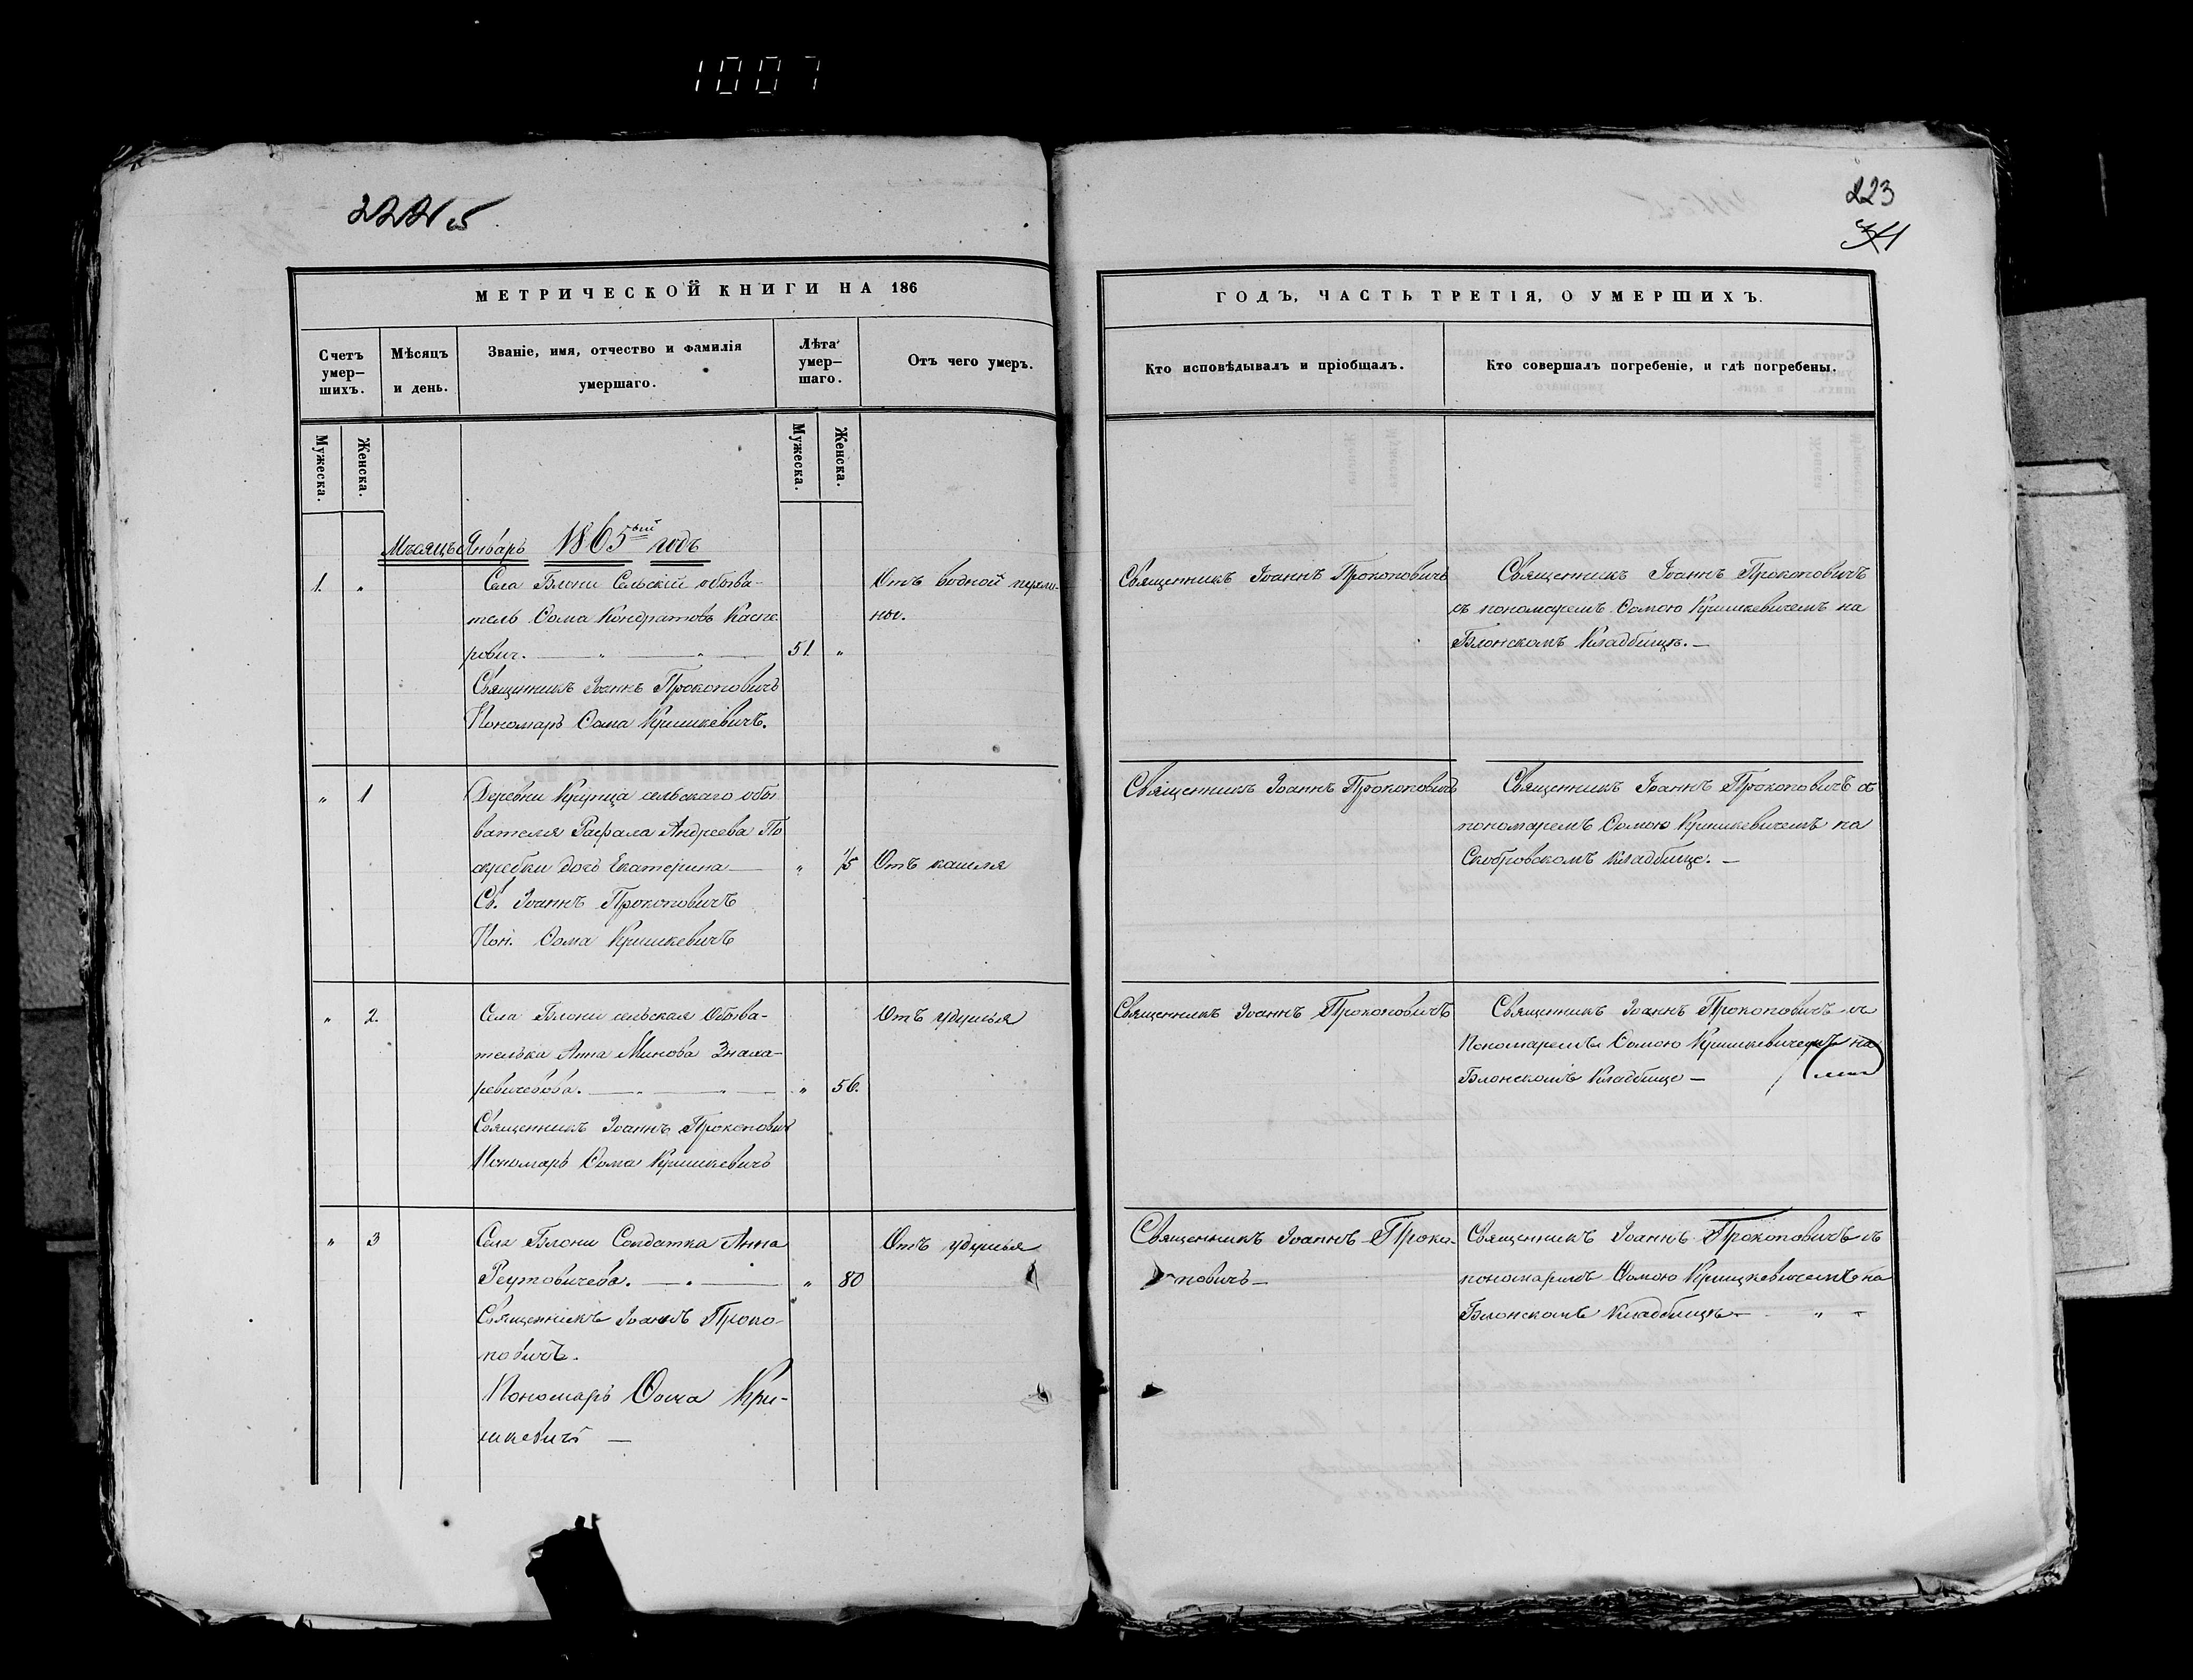 1007
223
МЕТРИЧЕСКОЙ КНИГИ НА 186
ГОДЪ, ЧАСТЬ ТРЕТІЯ, О УМЕРШИХЪ.
Счетъ умер-
шихъ.
Мѣсяцъ
и день.
Званіе, имя, отчество и фамилія
умершаго.
Лѣта
умер-
шаго.
Отъ чего умеръ.
Кто исповѣдывалъ и пріобщалъ.
Кто совершалъ погребеніе, и гдѣ погребены.
Мужеска.
Женска.
Мужеска.
Женска.
Мѣсяцъ Январь 1865ый годъ
1. „
Села Блони Сельскій обыва-
тель Ѳома Кондратовъ Каспе
ровичъ. — „ — „ — 51. „
Священникъ Іоаннъ Прокоповичъ
Пономарь Ѳома Кришкевичъ.
Отъ водной
ны.
Священникъ Іоаннъ Прокоповичъ
Священникъ Іоаннъ Прокоповичъ
съ пономаремъ Ѳомою Кришкевичемъ на
Блонскомъ Кладбищѣ. —
„ 1
Деревни сельскаго обы
вателя Рафала Андреева По
скребки дочь Екатерина — „ 1/5 Отъ кашля
Св. Іоаннъ Прокоповичъ
Пон. Ѳома Кришкевичъ
Священникъ Іоаннъ Прокоповичъ
Священникъ Іоаннъ Прокоповичъ съ
пономаремъ Ѳомою Кришкевичемъ на
кладбище. —
„ 2.
Села Блони сельская Обыва-
телька Анна Минова Знаха-
ревичевова. — „ — „ — „ 56.
Священникъ Іоаннъ Прокопович
Пономарь Ѳома Кришкевичъ
Отъ удушья
Священникъ Іоаннъ Прокоповичъ
Священникъ Іоаннъ Прокоповичъ съ
Пономаремъ Ѳомою Кришкевичемъ на
Блонскомъ Кладбище —
„ 3
Села Блони Солдатка Анна
Реутовичева. — . — „ 80
Священникъ Іоаннъ Проко-
повичъ.
Пономарь Ѳома Кри-
шкевичъ —
Отъ удушья
Священникъ Іоаннъ Проко-
повичъ —
Священникъ Іоаннъ Прокоповичъ съ
пономаремъ Ѳомою Кришкевичемъ на
Блонскомъ Кладбищѣ — „ —